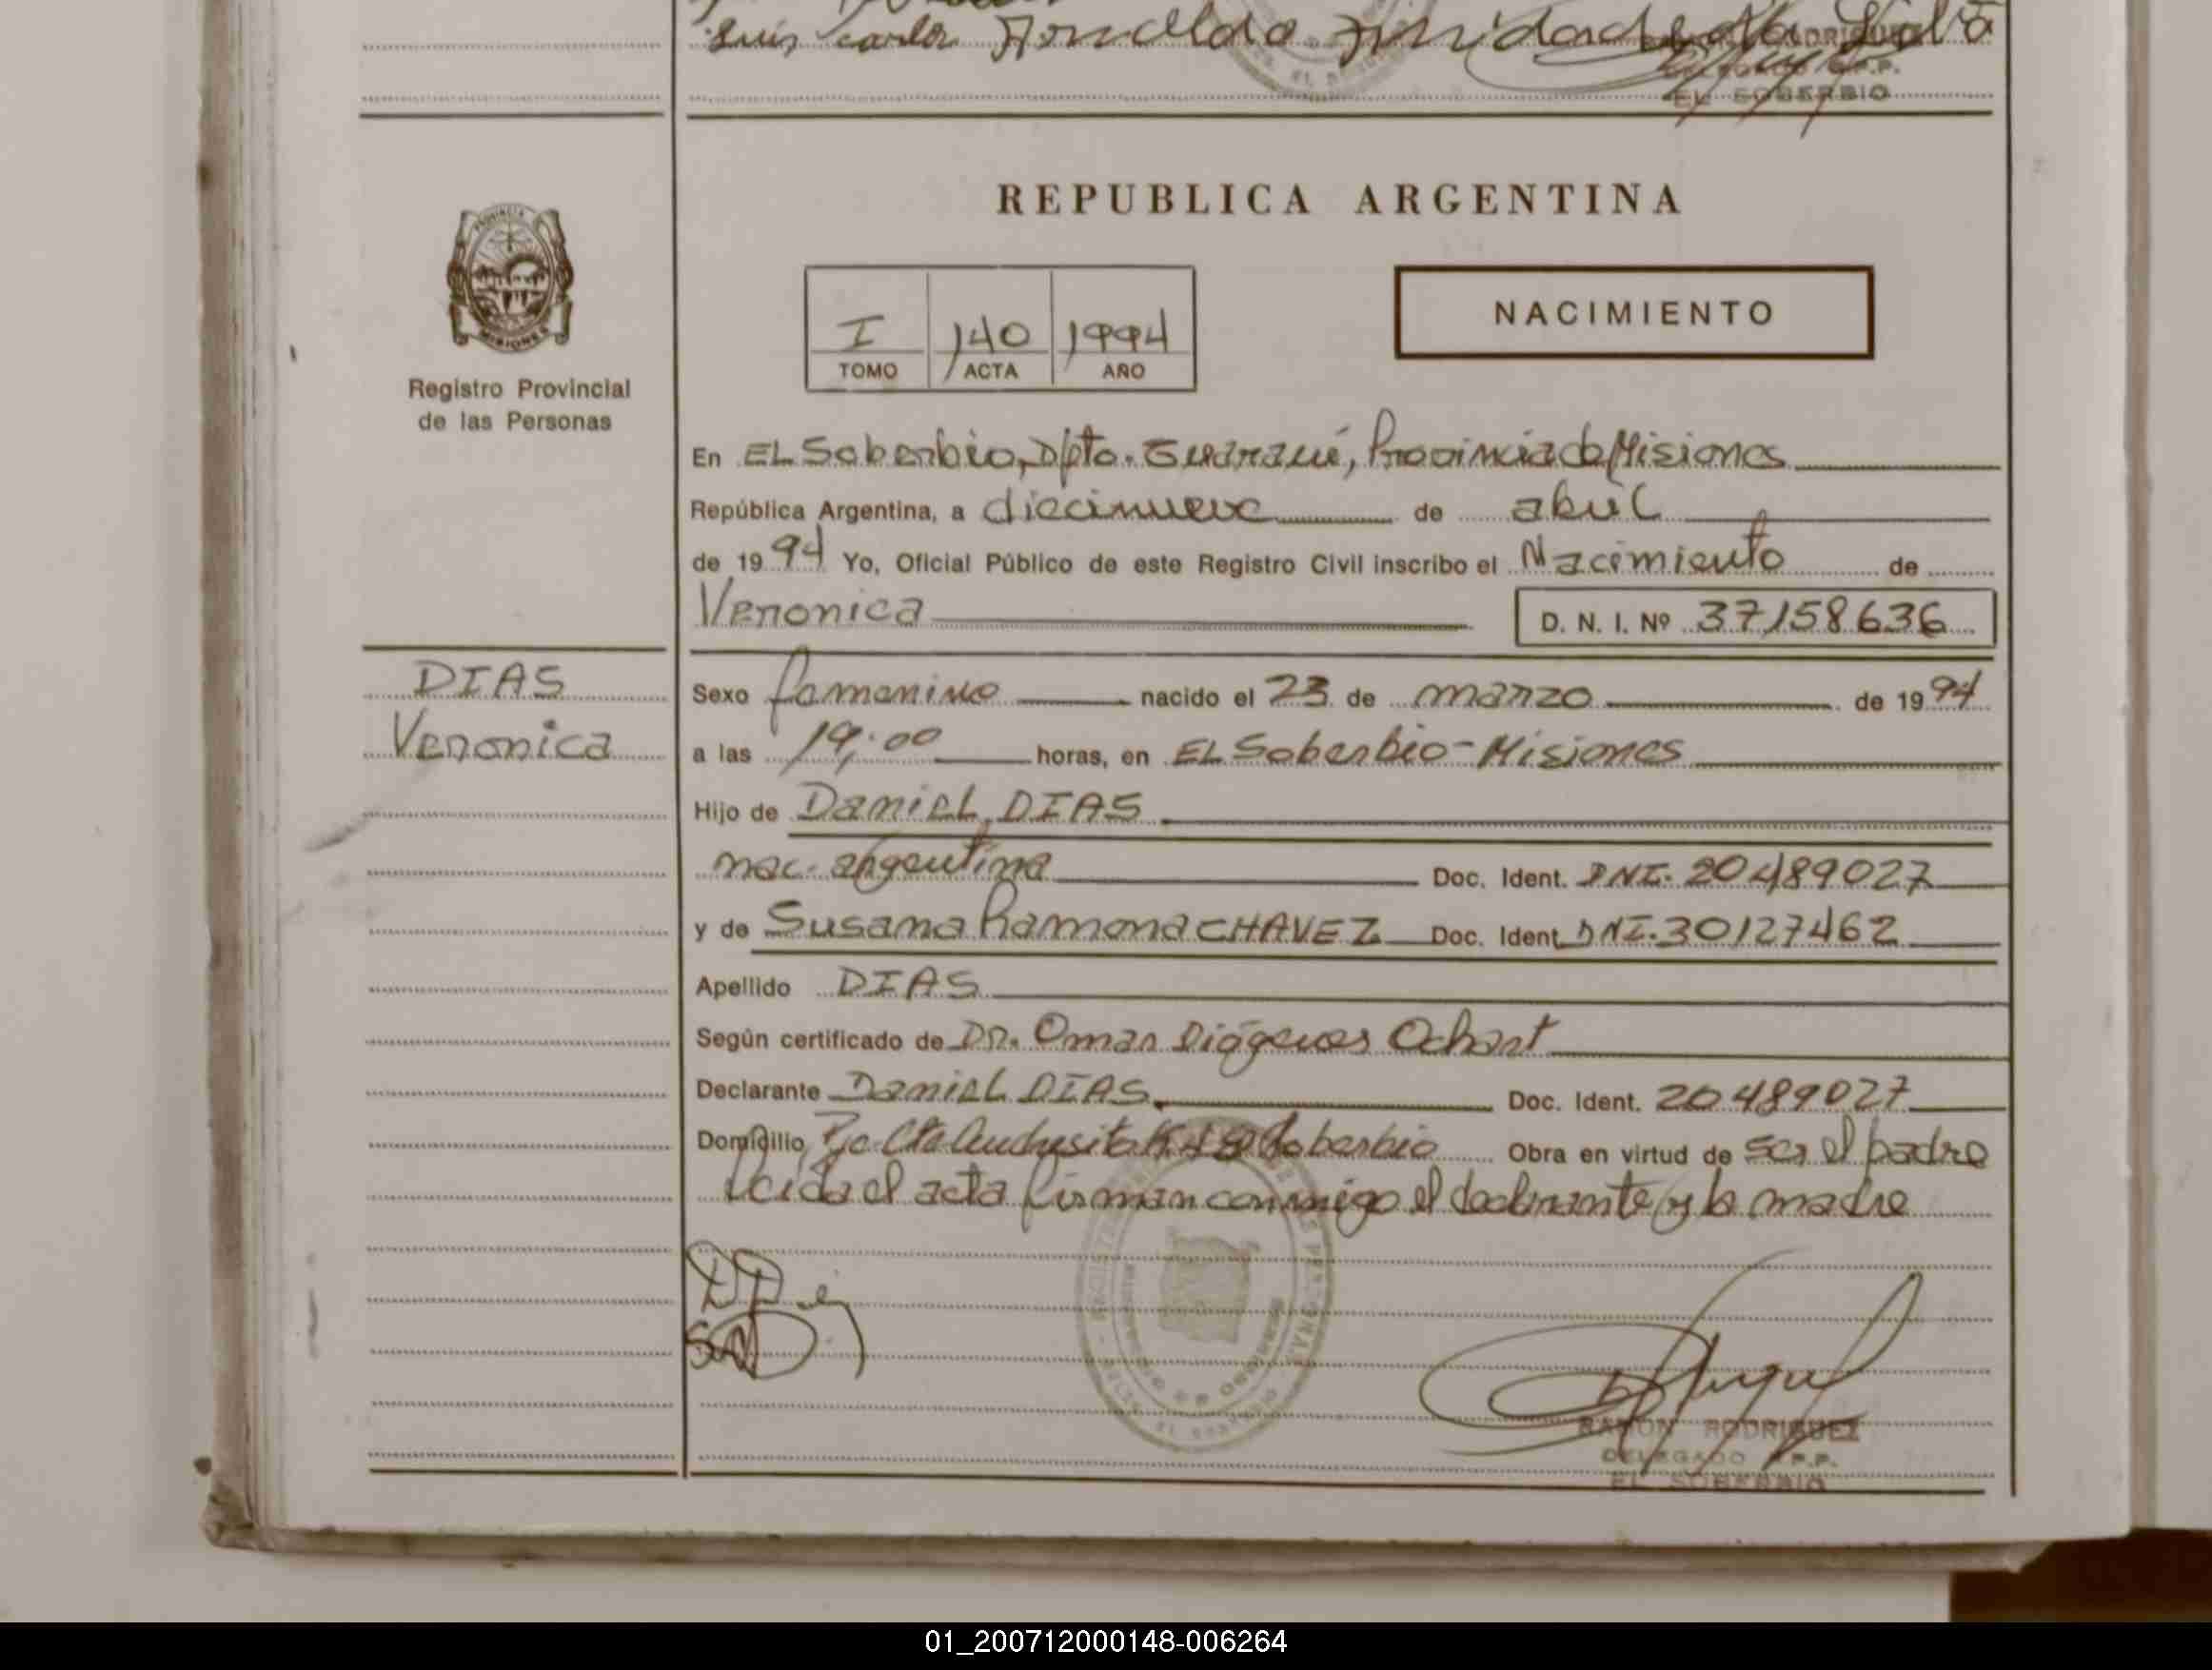 Luis Carlos Ronaldo Trindade da Silva
EL SOBERBIO
REPUBLICA ARGENTINA
PROVINCIA
MISIONES
Registro Provincial
de las Personas
I 140 1994
TOMO ACTA AÑO
NACIMIENTO
En EL Soberbio, Dpto. Guaraní, Provincia de Misiones
República Argentina, a diecinueve de abril
de 1994 Yo, Oficial Público de este Registro Civil inscribo el Nacimiento de
Veronica D. N. I. Nº 37158636
DIAS
Veronica
Sexo femenino nacido el 23 de marzo de 1994
a las 19:00 horas, en EL Soberbio-Misiones
Hijo de Daniel DIAS
nac. argentina Doc. Ident. DNI. 20489027
y de Susana Ramona CHAVEZ Doc. Ident. DNI. 30127462
Apellido DIAS
Según certificado de Dr. Omar Diógenes Ochart
Declarante Daniel DIAS Doc. Ident. 20489027
Domicilio Soberbio Obra en virtud de ser el padre
Leida el acta firman conmigo el declarante y la madre
RAMON RODRIGUEZ
DELEGADO R.P.P.
EL SOBERBIO
01_200712000148-006264